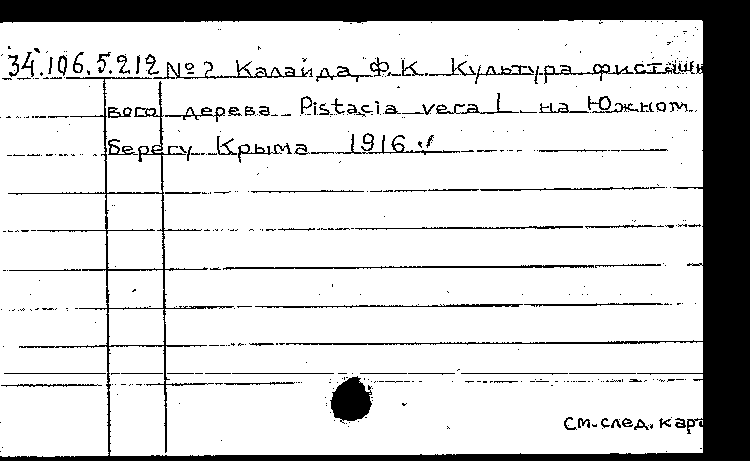 34.106.5.212 № 2 Калайда, Ф.К. Культура фисташк
вого дерева Pistacia vera L. на Южном
берегу Крыма 1916.
См. след. кар